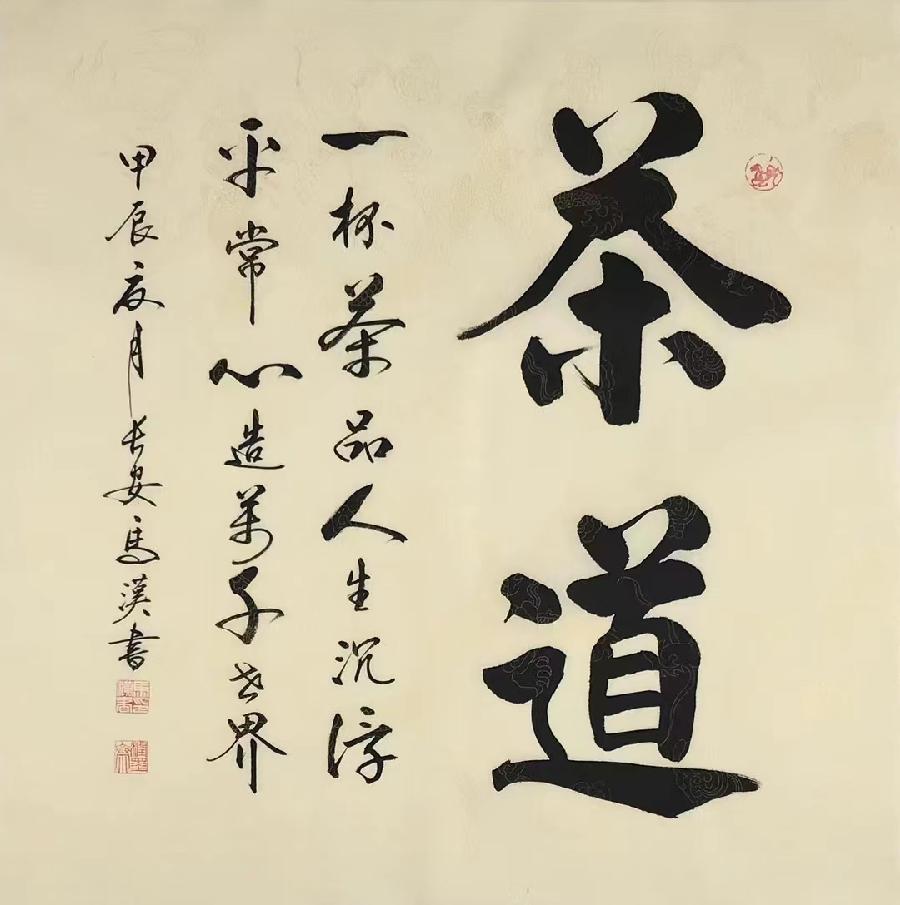 茶道
一杯茶品人生沉浮
平常心造万千世界
甲辰夏月长安马汉书